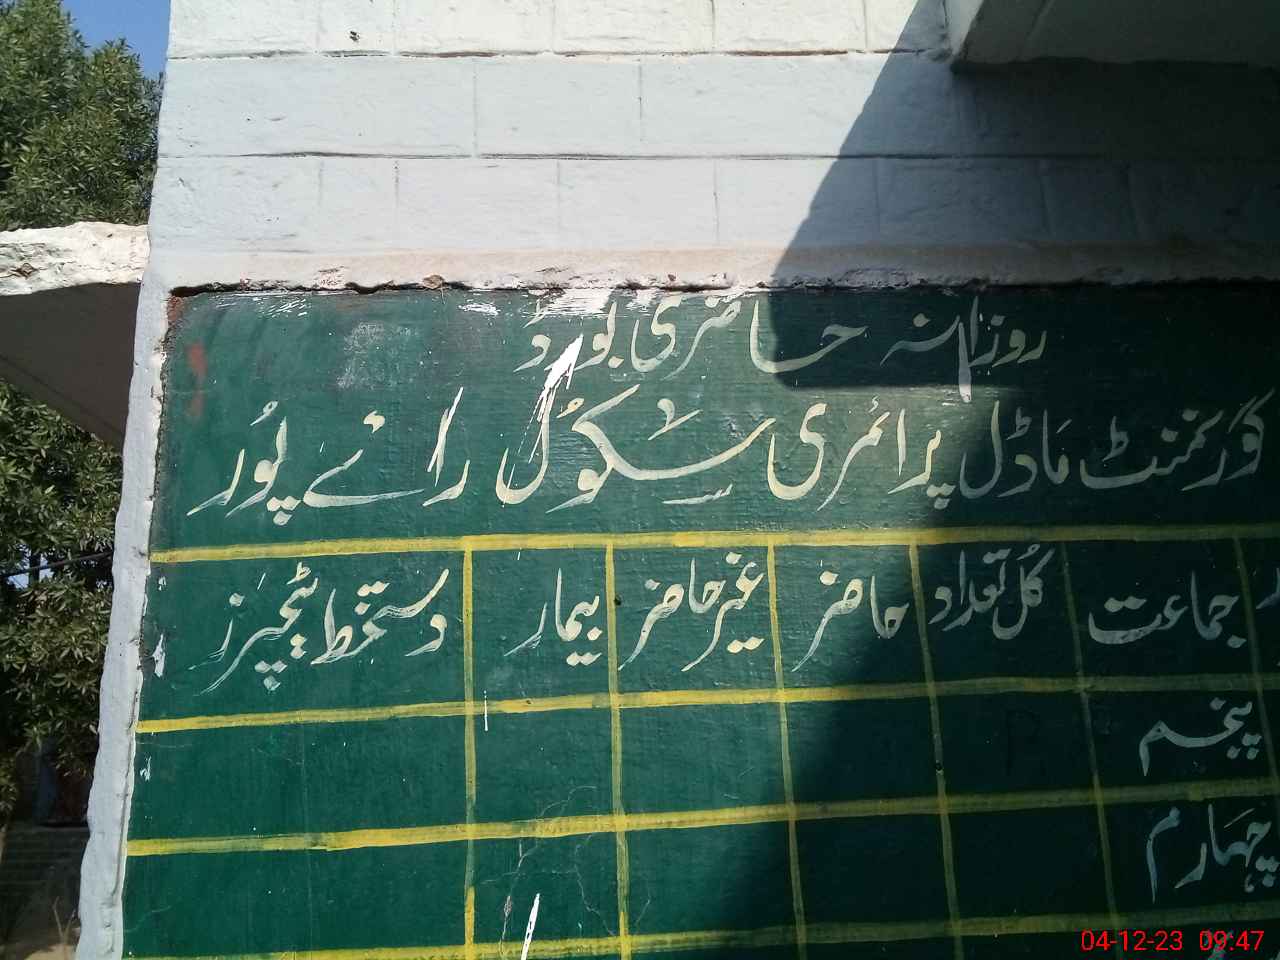 روزانہ حاضری بورڈ
گورنمنٹ ماڈل پرائمری سکول رائے پور
جماعت کل تعداد حاضر غیر حاضر بیمار دستخط ٹیچرز
پنجم
چہارم
04-12-23 09:47